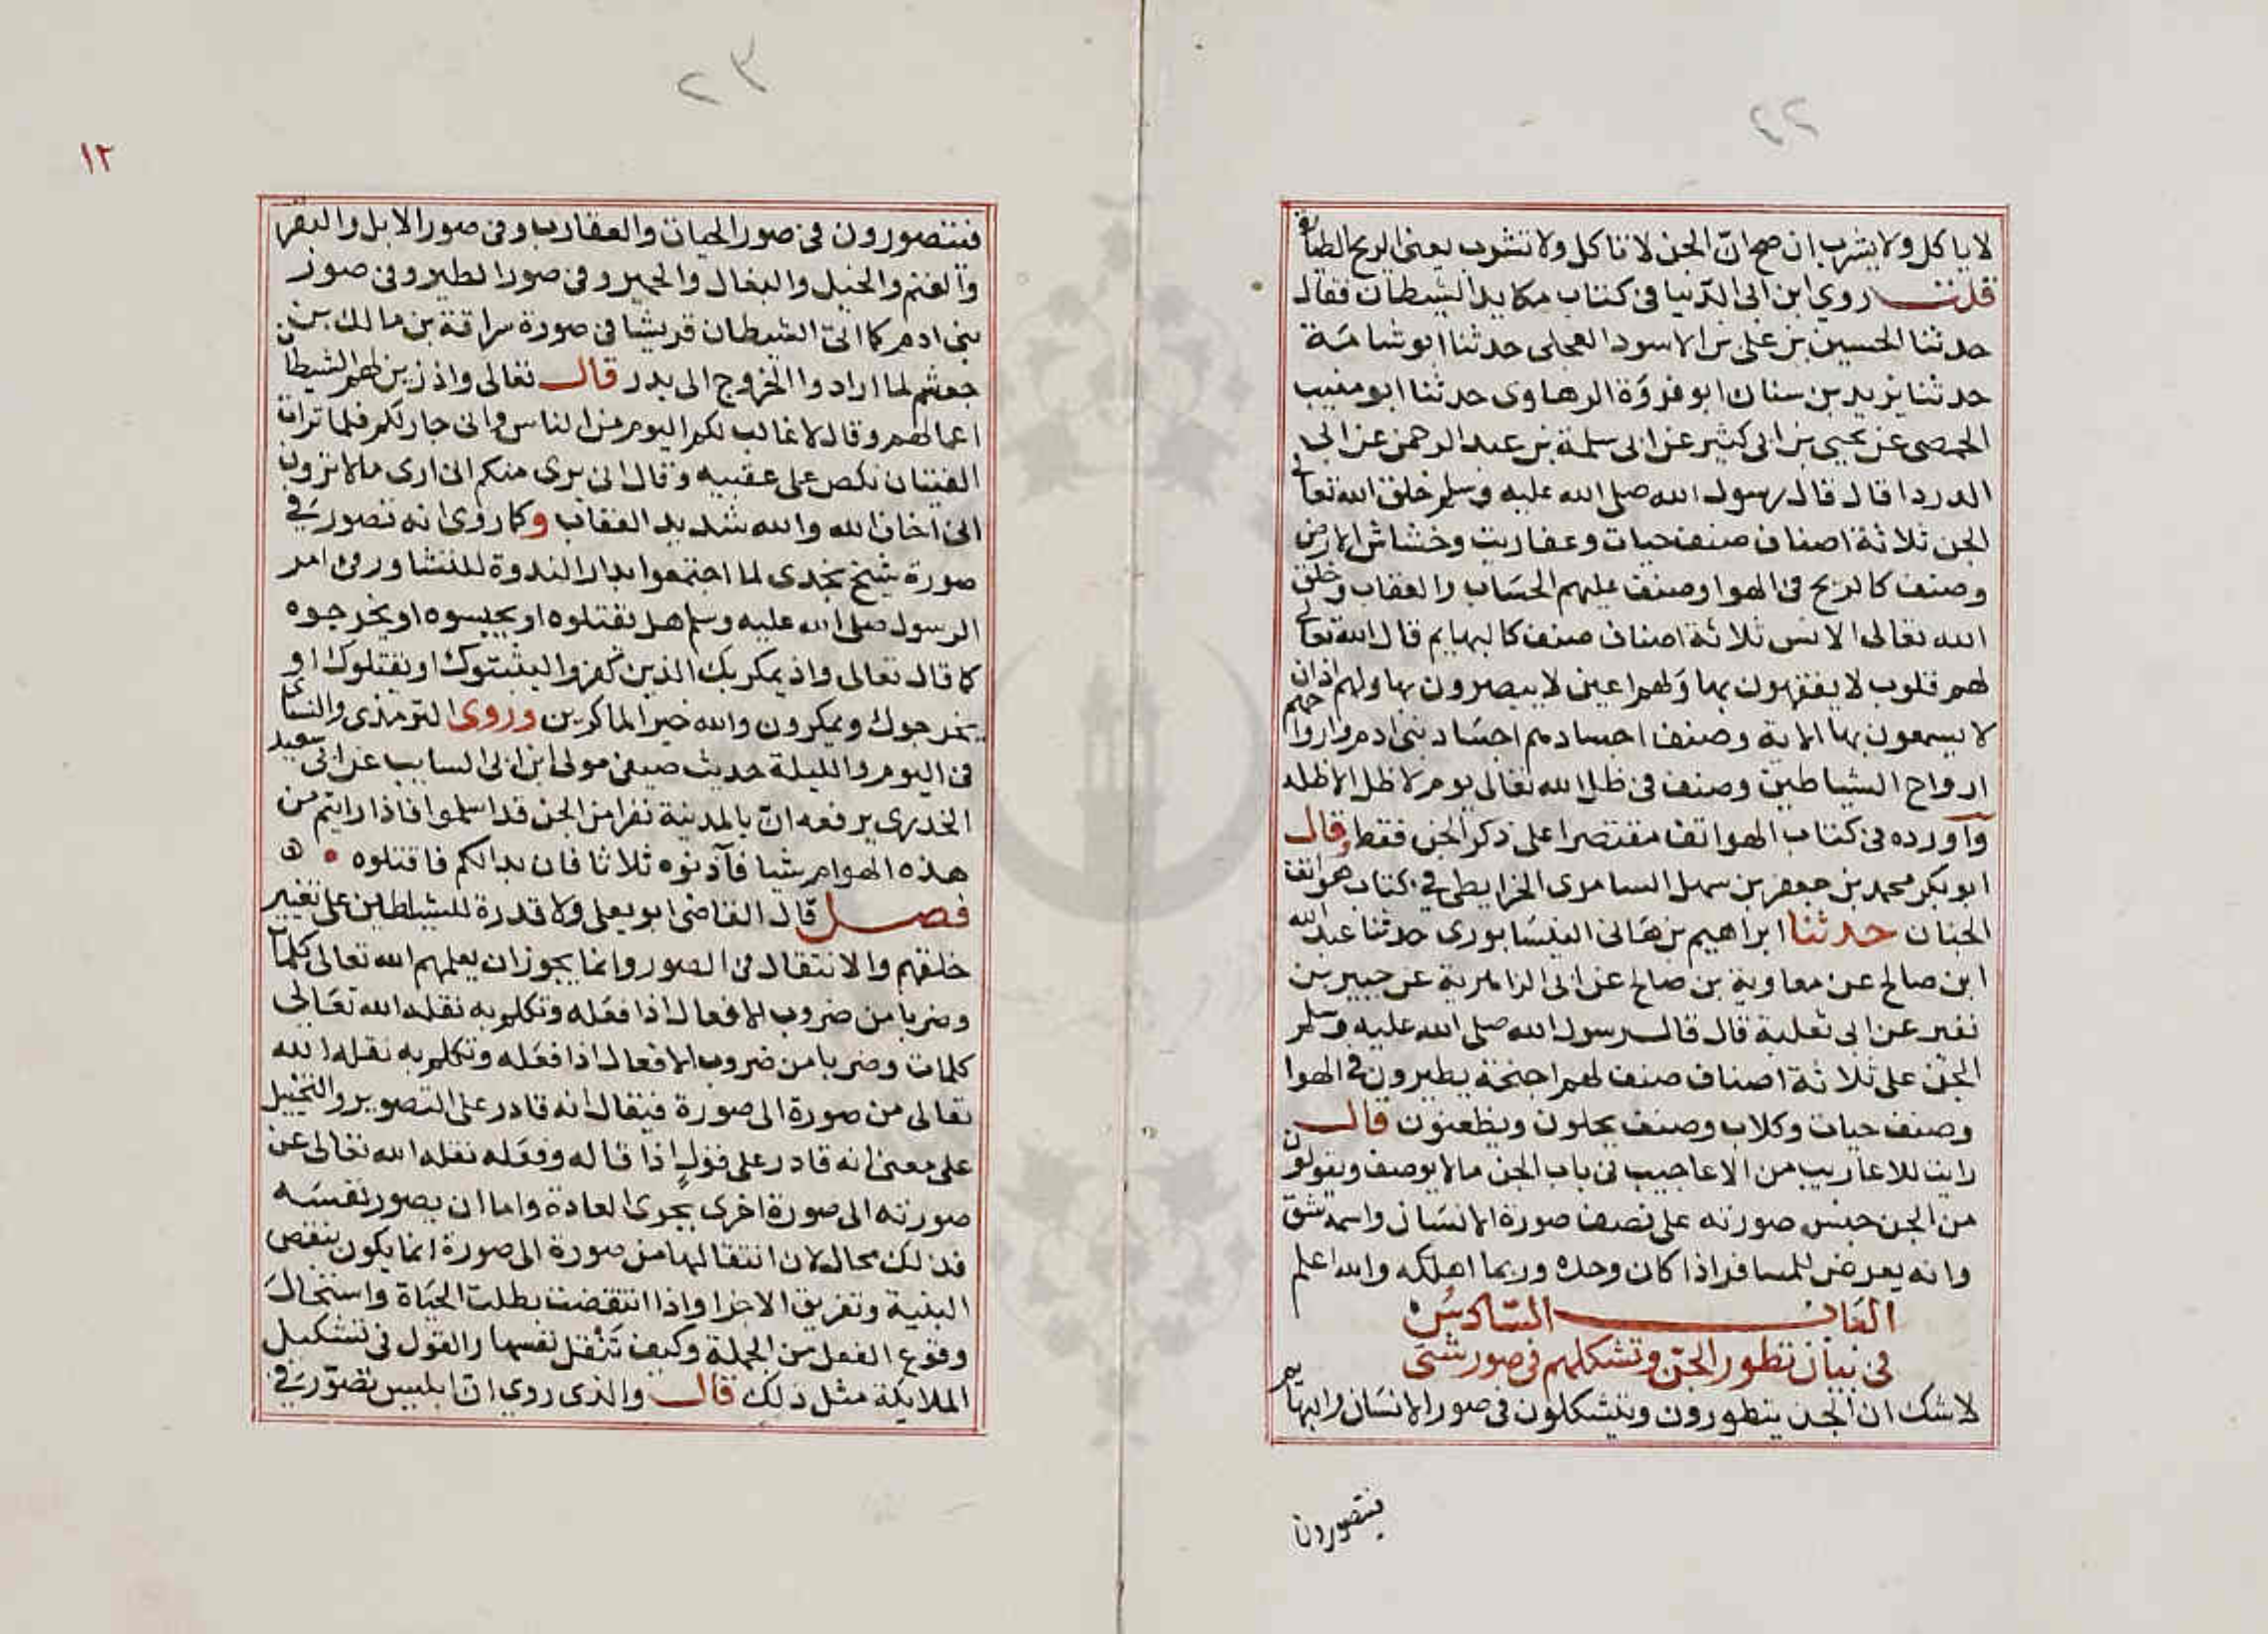 ٢٢
لا ياكل ولا يشرب ان صح ان الجن لا تاكل ولا تشرب يعنى الريح
قلت روى ابن ابى الدنيا فى كتاب مكايد الشيطان فقال
حدثنا الحسين بن على بن الاسود العجلى حدثنا ابو شامة
حدثنا يزيد بن سنان ابو فروة الرهاوى حدثنا ابو منيب
الحمصى عن يحيى بن ابى كثير عن ابى سلمة بن عبد الرحمن عن ابى
الدردا قال قال رسول الله صلى الله عليه وسلم خلق الله تعالى
الجن ثلاثة اصناف صنف حيات وعقاريت وخشاش الارض
وصنف كالريح فى الهوا وصنف عليهم الحساب والعقاب وخلق
الله تعالى الانس ثلاثة اصناف صنف كالبهايم قال الله تعالى
لهم قلوب لا يفقهون بها ولهم اعين لا يبصرون بها ولهم اذان
لا يسمعون بها الاية وصنف اجسادهم اجساد بنى ادم وارواحهم
ارواح الشياطين وصنف فى ظل الله تعالى يوم لا ظل الا ظله
وآورده فى كتاب الهواتف مقتصرا على ذكر الجن فقط وقال
ابو بكر محمد بن جعفر بن سهل السامرى الخرايطى فى كتاب هواتف
الجنان حدثنا ابراهيم بن هانى النيسابورى حدثنا عبد الله
ابن صالح عن معاوية بن صالح عن ابى الزاهرية عن جبير بن
نفير عن ابى ثعلبة قال قال رسول الله صلى الله عليه وسلم
الجن على ثلاثة اصناف صنف لهم اجنحة يطيرون فى الهوا
وصنف حيات وكلاب وصنف يحلون ويظعنون قال
رايت للاعاريب من الاعاجيب فى باب الجن مالا يوصف ويقولون
من الجن جنس صورته على نصف صورة الانسان واسمه شق
وانه يعرض للمسافر اذا كان وحده وربما اهلكه والله اعلم
الباب السادس
فى بيان تطور الجن وتشكلهم فى صور شتى
لا شك ان الجن يتطورون ويتشكلون فى صور الانسان والبهايم
فيتصورون
٢٣
١٢
فيتصورون فى صور الحيات والعقارب وفى صور الابل والبقر
والغنم والخيل والبغال والحمير وفى صور الطير وفى صور
بنى ادم كما اتى الشيطان قريشا فى صورة سراقة بن مالك بن
جعشم لما ارادوا الخروج الى بدر قال تعالى واذ زين لهم الشيطان
اعمالهم وقال لا غالب لكم اليوم من الناس وانى جار لكم فلما تراات
الفئتان نكص على عقبيه وقال انى برى منكم انى ارى مالا ترون
انى اخاف الله والله شديد العقاب وكما روى انه تصور فى
صورة شيخ نجدى لما اجتمعوا بدار الندوة للتشاور فى امر
الرسول صلى الله عليه وسلم هل تقتلوه او يحبسوه او يخرجوه
كما قال تعالى واذ يمكر بك الذين كفروا ليثبتوك او يقتلوك او
يخرجوك ويمكرون والله خير الماكرين وروى الترمذى والنسائى
فى اليوم والليلة حديث صيفى مولى ابن ابى السايب عن ابى سعيد
الخدرى يرفعه ان بالمدينة نفرا من الجن قد اسلموا فاذا رايتم من
هذه الهوام شيا فآذنوه ثلاثا فان بدا لكم فاقتلوه
فصل قال القاضى ابو يعلى ولا قدرة للشياطين على تغيير
خلقهم والانتقال فى الصور وانما يجوز ان يعلمهم الله تعالى كلمات
وضربا من ضروب الافعال اذا فعله وتكلم به نقله الله تعالى
كلمات وضربا من ضروب الافعال اذا فعله وتكلم به نقله الله
تعالى من صورة الى صورة فيقال انه قادر على التصوير والتخييل
على معنى انه قادر على قول اذا قاله وفعله نقله الله تعالى عن
صورته الى صورة اخرى بجرى العادة واما ان يصور نفسه
فذلك محال لان انتقالها من صورة الى صورة انما يكون بنقض
البنية وتفريق الاجزا واذا انتقضت بطلت الحياة واستحال
وقوع الفعل من الجملة وكيف تنقل نفسها والقول فى تشكيل
الملايكة مثل ذلك قال والذى روى ان ابليس تصور فى